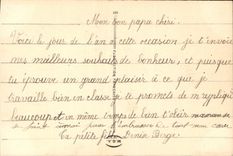 Mon bon papa chéri.
Voici le jour de l'an à cette occasion je t'envoie
mes meilleurs souhaits de bonheurs, et puisque
tu éprouve un grand plaisir à ce que je
travaille bien en classe je te promets de m'appliquer
beaucoup et en même temps de bien t'obéir maman
je
Ta petite fille Denise